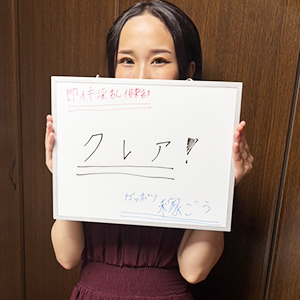 即イキ淫乱倶楽部
クレア!
ガッポリ
稼ごう